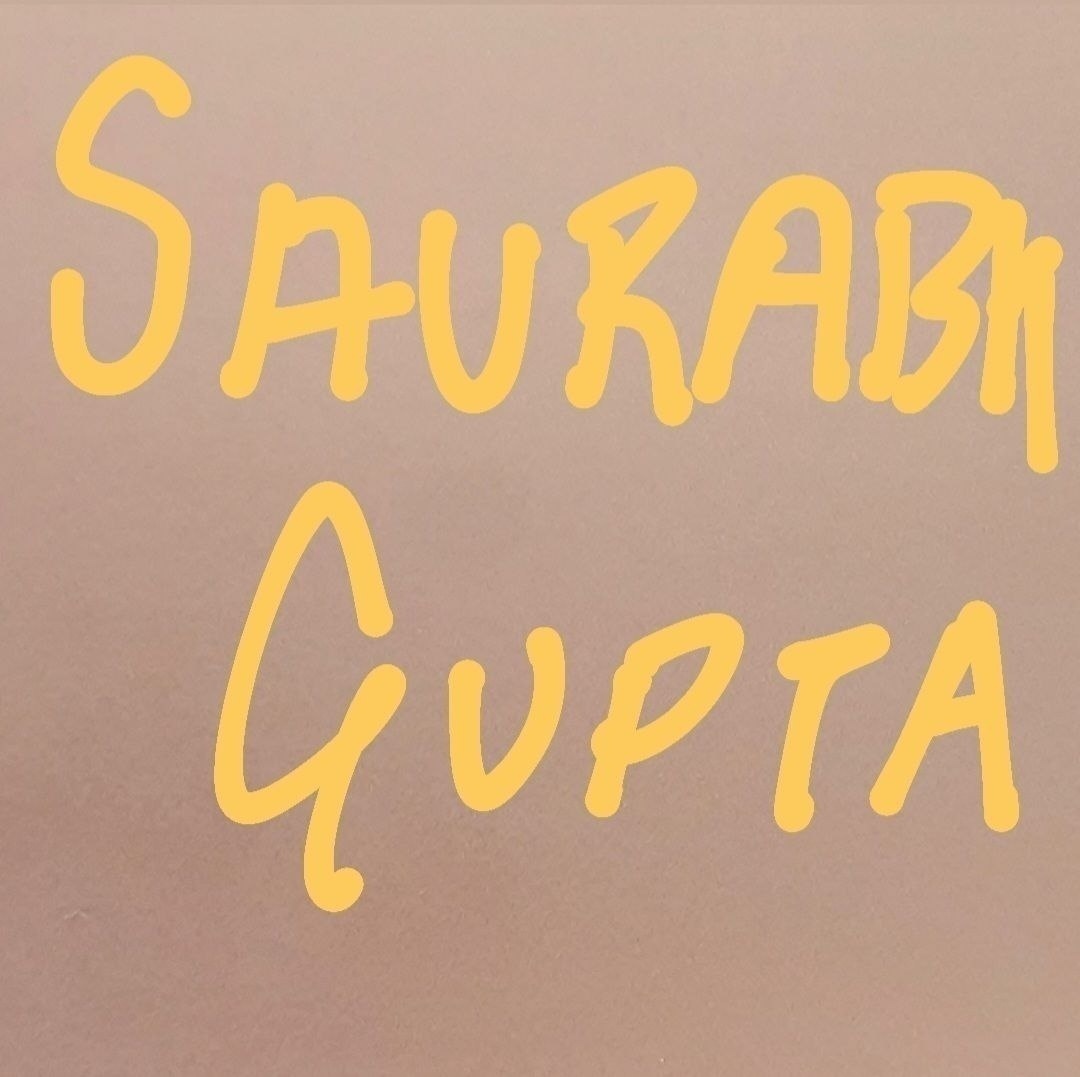 SAURABH
GUPTA